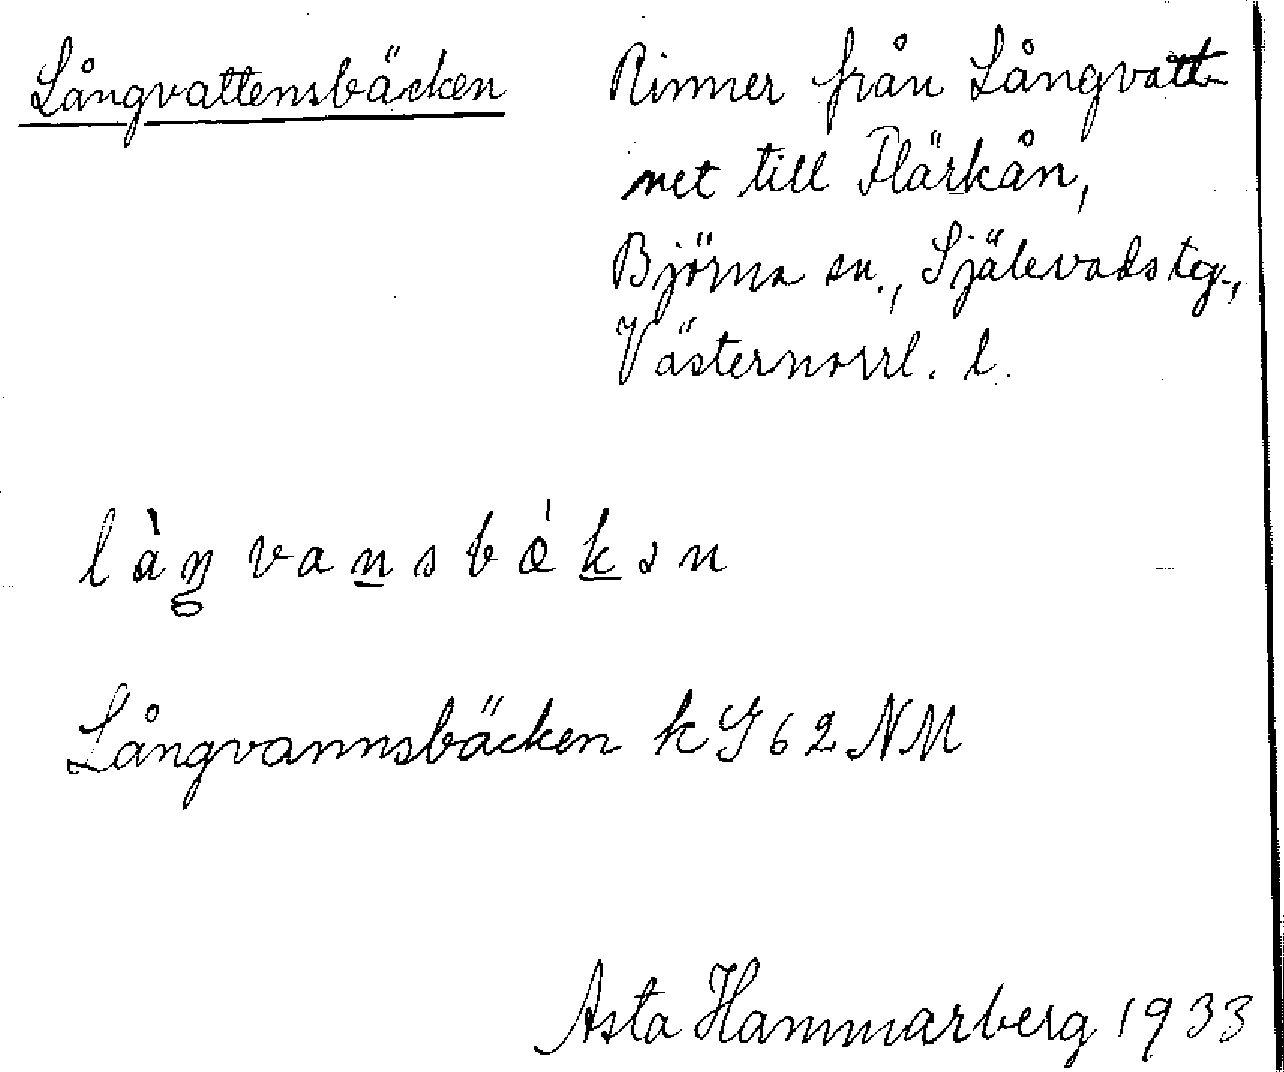 Långvattensbäcken
Rinner från Långvatt
net till Flärkån,
Björna sn., Själevads tg.,
Västernorrl. l.
làŋvansbǿkən
Långvannsbäcken kG 62 NM
Asta Hammarberg 1933